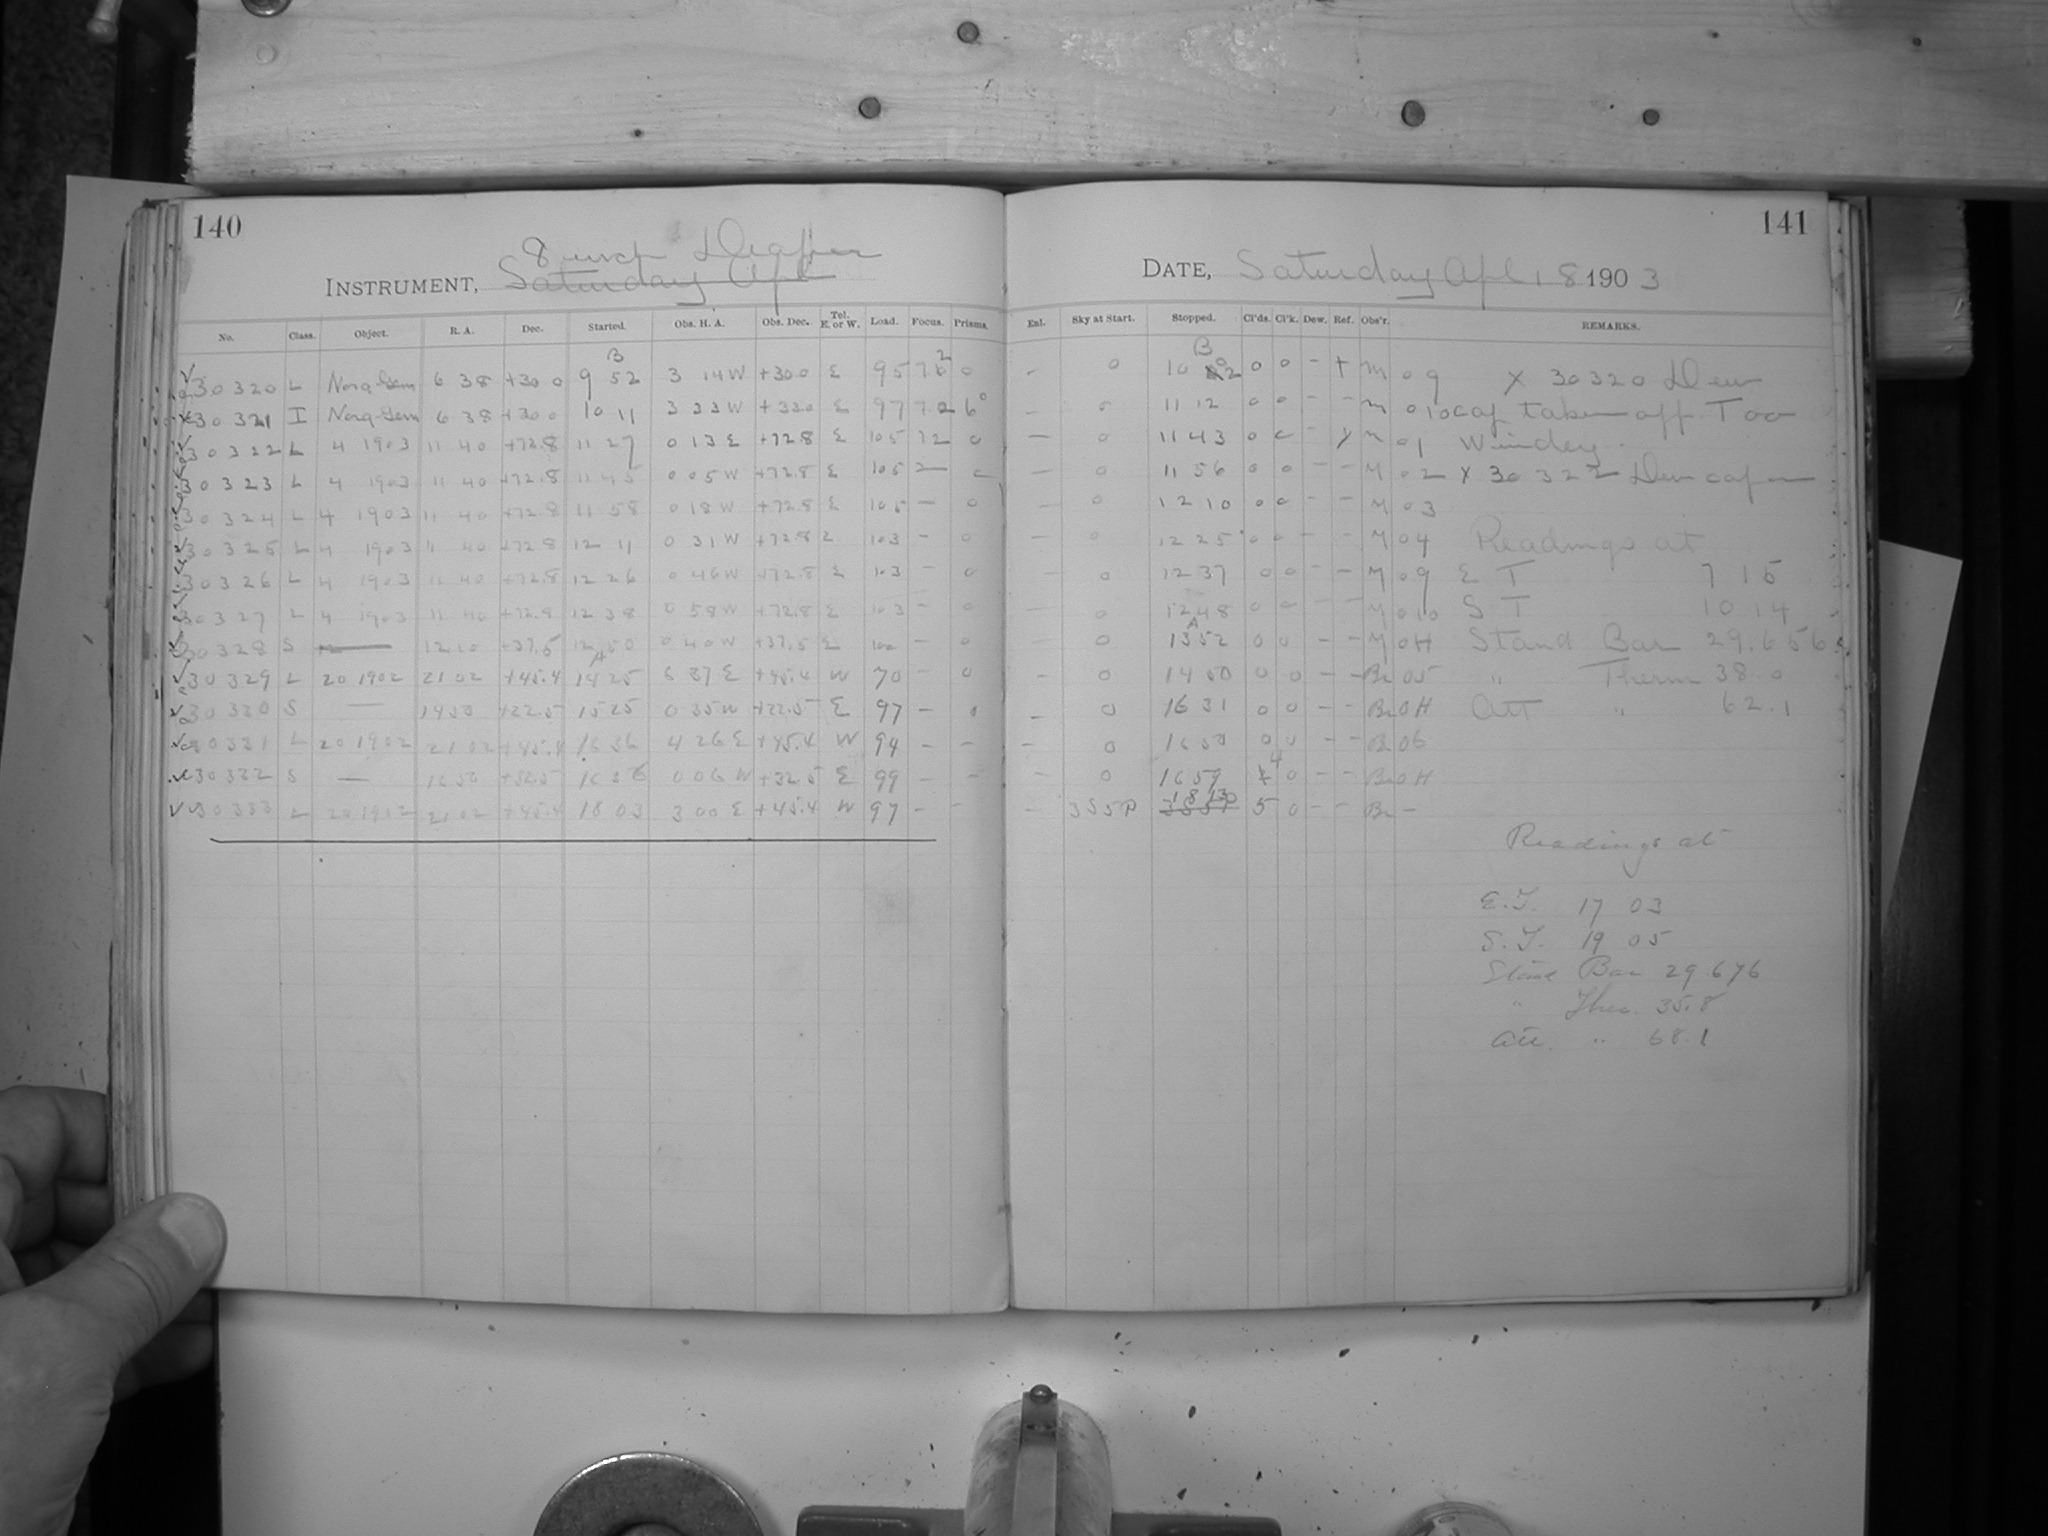 140
8 inch Draper
INSTRUMENT, Saturday Apl
No. Class. Object. R. A. Dec. Started. Obs. H. A. Obs. Dec. Tel. E. or W. Load. Focus. Prisms.
B 2
30320 L Nova Gem 6 38 +30 0 9 52 3 14 W +30.0 E 95 7.6 0
30321 I Nova Gem 6 38 +30 0 10 11 3 33 W + E 97 7.2 6°
30322 L 4 1903 11 40 +72.8 11 27 0 13 E +72.8 E 105 72 0
30323 L 4 1903 11 40 +72.8 11 45 0 05 W +72.8 E 105 —
30324 L 4 1903 11 40 +72.8 11 58 0 18 W +72.8 E 105 — 0
30325 L 4 1903 11 40 +72.8 12 11 0 31 W +72.8 E 103 - 0
30326 L 4 1903 11 40 +72.8 12 26 0 46 W +72.8 E 103 - 0
30327 L 4 1903 11 40 +72.8 12 38 0 58 W +72.8 E 103 - 0
30328 S — 12 10 +37.5 12 50 0 40 W +37.5 E 100 - 0
30329 L 20 1902 21 02 +45.4 14 25 6 37 E +45.4 W 70 - 0
30330 S — 14 50 +22.5 15 25 0 35 W +22.5 E 97 - 0
30331 L 20 1902 21 02 +45.4 16 36 4 26 E +45.4 W 94 - -
30332 S — 16 50 +32.5 16 56 0 06 W +32.5 E 99 - -
30333 L 20 1902 21 02 +45.4 18 03 3 00 E +45.4 W 97 - -
141
DATE, Saturday Apl 18 1903
Enl. Sky at Start. Stopped. Cl'ds. Cl'k. Dew. Ref. Obs'r. REMARKS.
B
- 0 10 2 0 0 - + M 09 X 30320 Dew
- 0 11 12 0 0 - - M 010 cap taken off. Too
— 0 11 43 0 0 - M 01 Windey.
— 0 11 56 0 0 - - M 02 X 30322 Dew cap on
— 0 12 10 0 0 - - M 03
— 0 12 25 0 0 - - M 04 Readings at
— 0 12 37 0 0 - - M 09 E T 7 15
— 0 12 48 0 0 - - M 010 S T 10 14
— 0 13 52 0 0 - - M OH Stand Bar 29.656
- 0 14 50 0 0 - - Br 05 " Therm 38.0
- 0 16 31 0 0 - - Br OH Att " 62.1
- 0 16 50 0 0 - - Br 06
- 0 16 59 4 0 - - Br OH
- 3 S 5 P 18 130 5 0 - - Br -
Readings at
E.T. 17 03
S.T. 19 05
Bar 29.676
" Ther. 35.8
Att. " 68.1